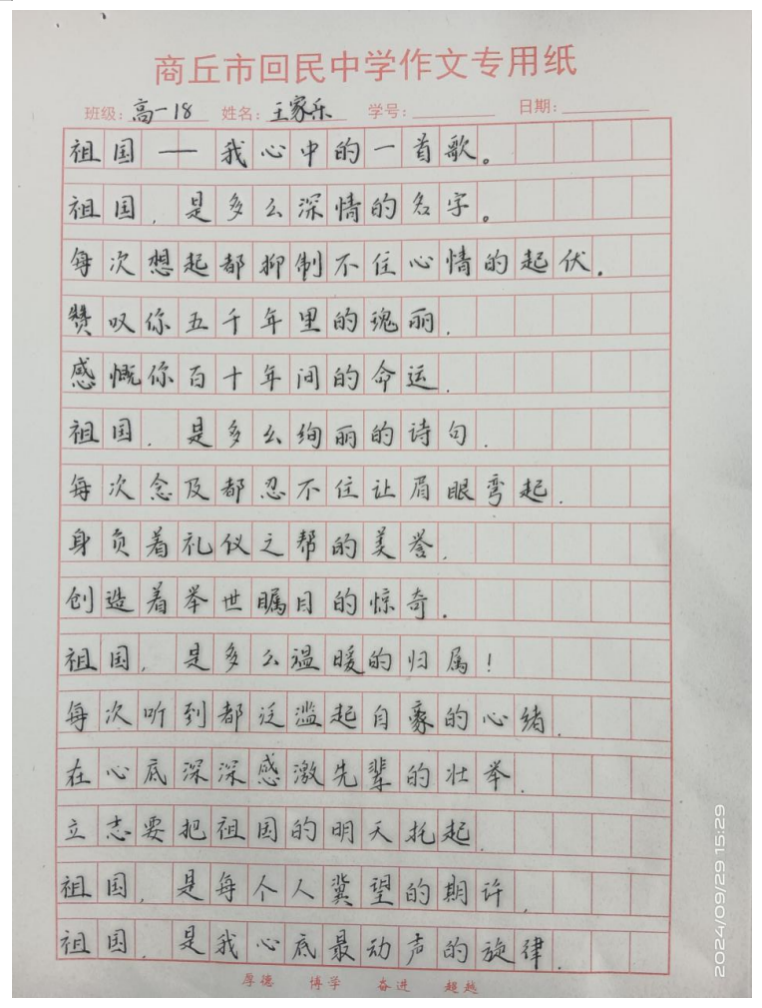 商丘市回民中学作文专用纸
班级：高一18 姓名：王家乐 学号： 日期：
祖国——我心中的一首歌。
祖国，是多么深情的名字。
每次想起都抑制不住心情的起伏.
赞叹你五千年里的瑰丽.
感慨你百十年间的命运.
祖国，是多么绚丽的诗句.
每次念及都忍不住让眉眼弯起.
身负着礼仪之帮的美誉.
创造着举世瞩目的惊奇.
祖国，是多么温暖的归属！
每次听到都泛滥起自豪的心绪.
在心底深深感激先辈的壮举.
立志要把祖国的明天托起.
祖国，是每个人冀望的期许，
祖国，是我心底最动声的旋律.
厚德 博学 奋进 超越
2024/09/29 15:29